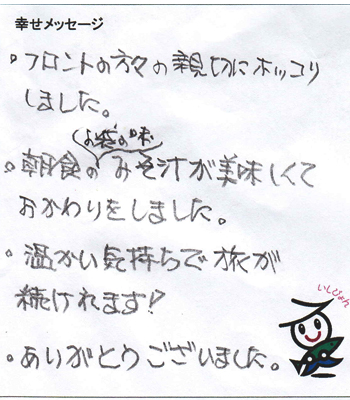 幸せメッセージ
・フロントの方々の親切にホッコリ
しました。
(お袋の味)
・朝食のみそ汁が美味しくて
おかわりをしました。
・温かい気持ちで旅が
続けれます!
いしぴょん
・ありがとうございました。